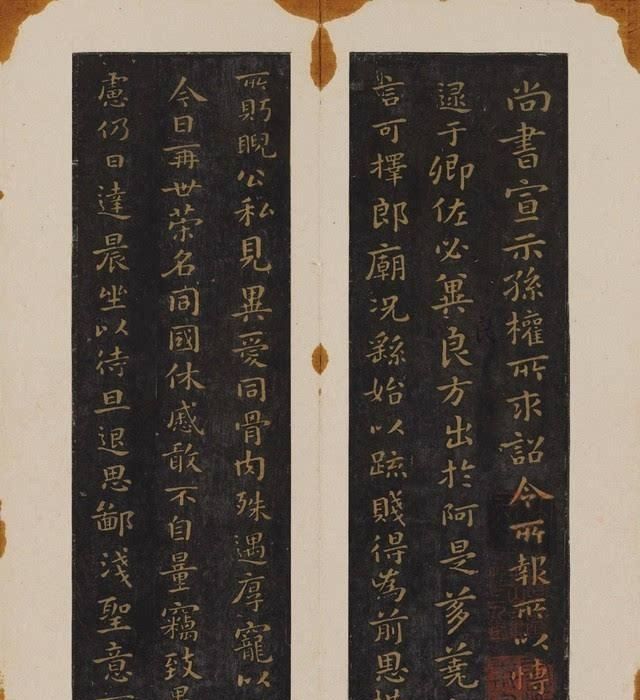 尚書宣示孫權所求詔令所報所以博
逮于卿佐必兾良方出於阿是芻蕘
言可擇郎廟況繇始以疏賤得為前恩
所眄睨公私見異愛同骨肉殊遇厚寵以
今日再世榮名同國休慼敢不自量竊致愚
慮仍日達晨坐以待旦退思鄙淺聖意